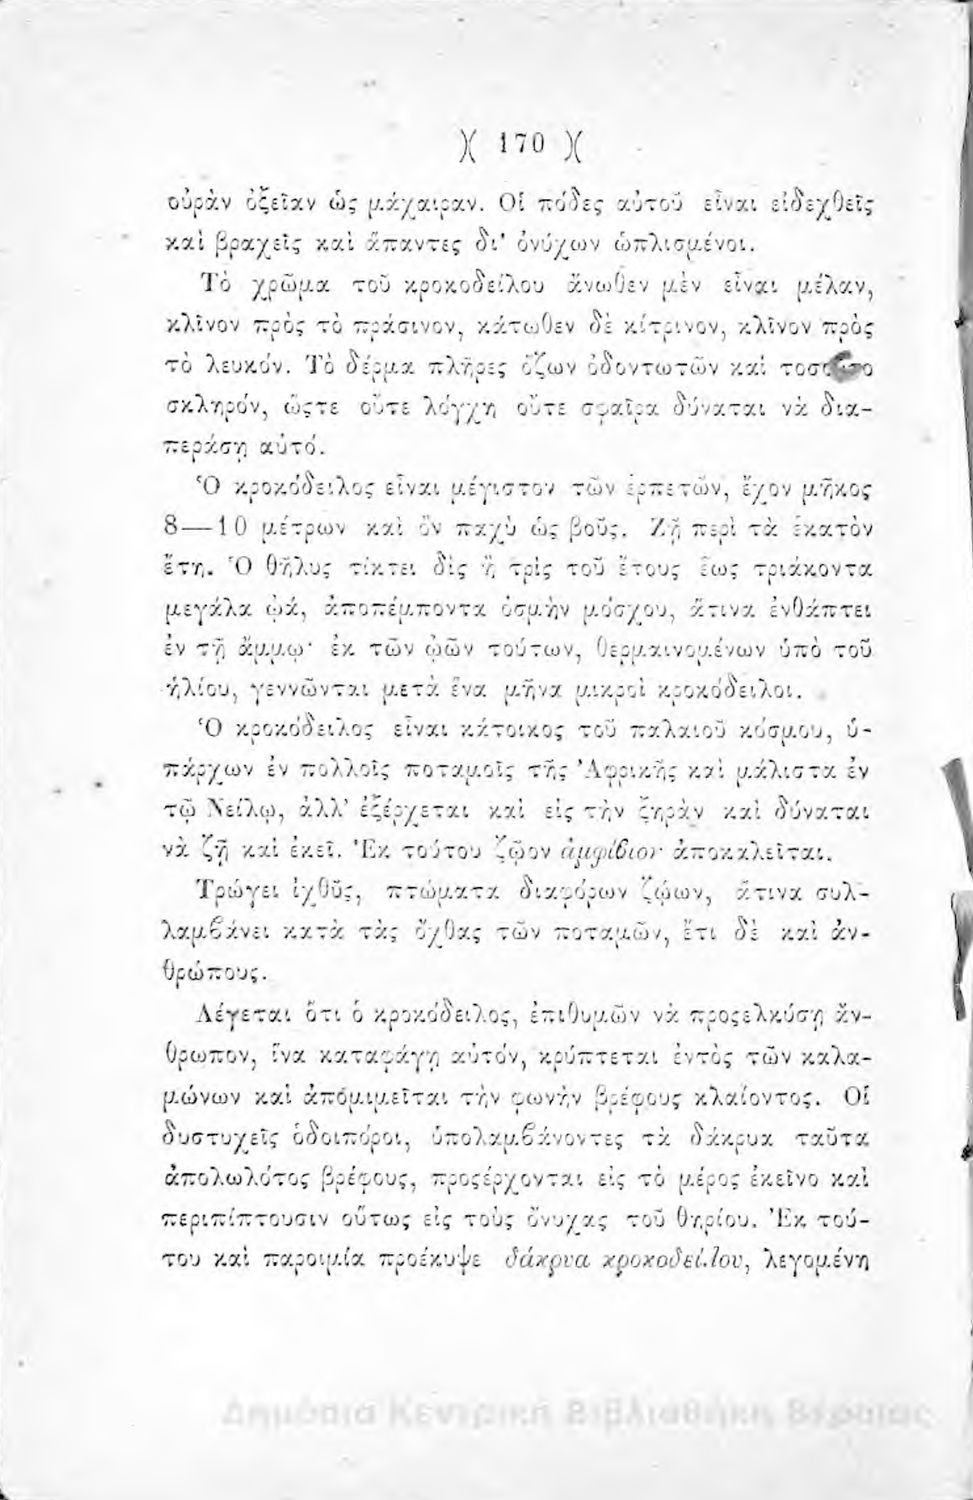 )( 170 )(
οὐρὰν ὀξεῖαν ὡς μάχαιραν. Οἱ πόδες αὐτοῦ εἶναι εἰδεχθεῖς
καὶ βραχεῖς καὶ ἅπαντες δι' ὀνύχων ὡπλισμένοι.
Τὸ χρῶμα τοῦ κροκοδείλου ἄνωθεν μὲν εἶναι μέλαν,
κλῖνον πρὸς τὸ πράσινον, κάτωθεν δὲ κίτρινον, κλῖνον πρὸς
τὸ λευκόν. Τὸ δέρμα πλῆρες ὄζων ὀδοντωτῶν καὶ
σκληρόν, ὥςτε οὔτε λόγχη οὔτε σφαῖρα δύναται νὰ δια-
περάσῃ αὐτό.
Ὁ κροκόδειλος εἶναι μέγιστον τῶν ἑρπετῶν, ἔχον μῆκος
8—10 μέτρων καὶ ὂν παχὺ ὡς βοῦς. Ζῇ περὶ τὰ ἑκατὸν
ἔτη. Ὁ θῆλυς τίκτει δὶς ἢ τρὶς τοῦ ἔτους ἕως τριάκοντα
μεγάλα ᾠά, ἀποπέμποντα ὀσμὴν μόσχου, ἅτινα ἐνθάπτει
ἐν τῇ ἄμμῳ· ἐκ τῶν ᾠῶν τούτων, θερμαινομένων ὑπὸ τοῦ
ἡλίου, γεννῶνται μετὰ ἕνα μῆνα μικροὶ κροκόδειλοι.
Ὁ κροκόδειλος εἶναι κάτοικος τοῦ παλαιοῦ κόσμου, ὑ-
πάρχων ἐν πολλοῖς ποταμοῖς τῆς Ἀφρικῆς καὶ μάλιστα ἐν
τῷ Νείλῳ, ἀλλ' ἐξέρχεται καὶ εἰς τὴν ξηρὰν καὶ δύναται
νὰ ζῇ καὶ ἐκεῖ. Ἐκ τούτου ζῷον ἀμφίβιον ἀποκαλεῖται.
Τρώγει ἰχθῦς, πτώματα διαφόρων ζῴων, ἅτινα συλ-
λαμβάνει κατὰ τὰς ὄχθας τῶν ποταμῶν, ἔτι δὲ καὶ ἀν-
θρώπους.
Λέγεται ὅτι ὁ κροκόδειλος, ἐπιθυμῶν νὰ προςελκύσῃ ἄν-
θρωπον, ἵνα καταφάγῃ αὐτόν, κρύπτεται ἐντὸς τῶν καλα-
μώνων καὶ ἀπομιμεῖται τὴν φωνὴν βρέφους κλαίοντος. Οἱ
δυστυχεῖς ὁδοιπόροι, ὑπολαμβάνοντες τὰ δάκρυα ταῦτα
ἀπολωλότος βρέφους, προςέρχονται εἰς τὸ μέρος ἐκεῖνο καὶ
περιπίπτουσιν οὕτως εἰς τοὺς ὄνυχας τοῦ θηρίου. Ἐκ τού-
του καὶ παροιμία προέκυψε δάκρυα κροκοδείλου, λεγομένη
Δημόσια Κεντρική Βιβλιοθήκη Βέροιας